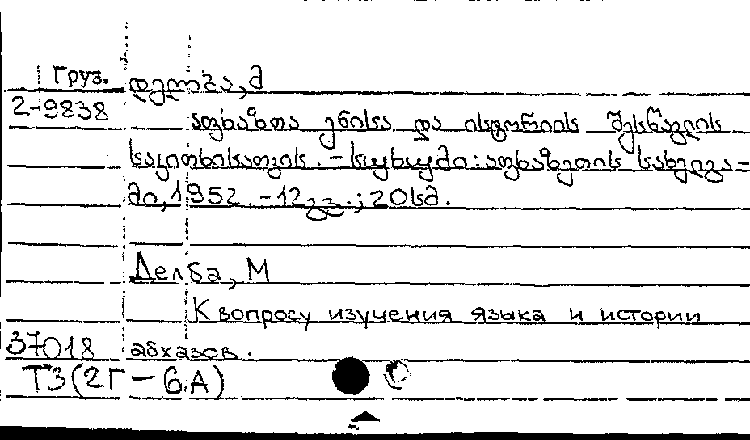 Груз. დელბა, მ
2-9838
აფხაზთა ენისა და ისტორიის შესწავლის
საკითხისათვის. - სოხუმი: აფხაზეთის სახელგა-
მი, 1952 - 12გვ.; 20სმ.
Делба, М
К вопросу изучения языка и истории
37018 абхазов.
ТЗ(2Г-6.А)